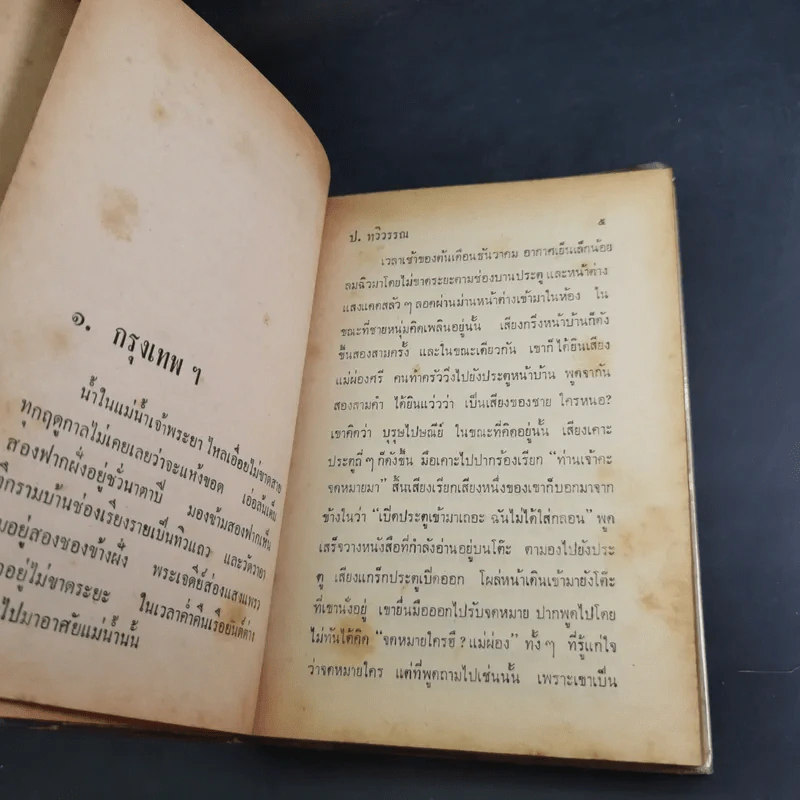 ๑. กรุงเทพ ฯ
น้ำในแม่น้ำเจ้าพระยา ไหลเอื่อยไม่ขาดสาย
ทุกฤดูกาลไม่เคยเลยว่าจะแห้งขอด เอ่อล้นเต็ม
สองฟากฝั่งอยู่ชั่วนาตาปี มองข้ามสองฟากเห็น
ตึกรามบ้านช่องเรียงรายเป็นทิวแถว และวัดวาอา
มอยู่สองของข้างฝั่ง พระเจดีย์ส่องแสงแพรว
อยู่ไม่ขาดระยะ ในเวลาค่ำคืนเรือยนต์ต่าง
ไปมาอาศัยแม่น้ำนั้น
ป. ทวีวรรณ ๕
เวลาเช้าของต้นเดือนธันวาคม อากาศเย็นเล็กน้อย
ลมฉิวมาโดยไม่ขาดระยะตามช่องบานประตู และหน้าต่าง
แสงแดดสลัว ๆ ลอดผ่านม่านหน้าต่างเข้ามาในห้อง ใน
ขณะที่ชายหนุ่มคิดเพลินอยู่นั้น เสียงกริ่งหน้าบ้านก็ดัง
ขึ้นสองสามครั้ง และในขณะเดียวกัน เขาก็ได้ยินเสียง
แม่ผ่องศรี คนทำครัววิ่งไปยังประตูหน้าบ้าน พูดจากัน
สองสามคำ ได้ยินแว่วว่า เป็นเสียงของชาย ใครหนอ?
เขาคิดว่า บุรุษไปษณีย์ ในขณะที่คิดอยู่นั้น เสียงเคาะ
ประตูถี่ ๆ ก็ดังขึ้น มือเคาะไปปากร้องเรียก “ท่านเจ้าคะ
จดหมายมา” สิ้นเสียงเรียกเสียงหนึ่งของเขาก็บอกมาจาก
ข้างในว่า “เปิดประตูเข้ามาเถอะ ฉันไม่ได้ใส่กลอน” พูด
เสร็จวางหนังสือที่กำลังอ่านอยู่บนโต๊ะ ตามองไปยังประ
ตู เสียงแกร็กประตูเปิดออก โผล่หน้าเดินเข้ามายังโต๊ะ
ที่เขานั่งอยู่ เขายื่นมือออกไปรับจดหมาย ปากพูดไปโดย
ไม่ทันได้คิด “จดหมายใครฮึ ? แม่ผ่อง” ทั้ง ๆ ที่รู้แก่ใจ
ว่าจดหมายใคร แต่ที่พูดถามไปเช่นนั้น เพราะเขาเป็น